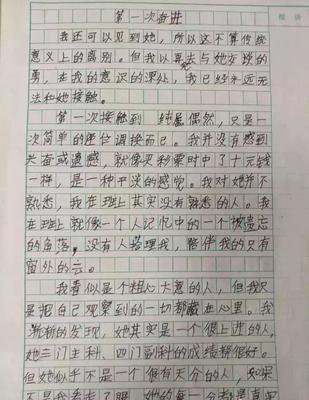 第一次奋进
我还可以见到她,所以这不算传统
意义上的离别。但我以再去与她交谈的
勇,在我的意识的深处,我已经永远无
法和她接触。
第一次接触到 纯属偶然,只是一
次简单的座位调换而已。我并没有感到
失落或遗憾,就像买彩票时中了十元钱
一样,是一种平淡的感觉。我对她并不
熟悉,我在班上其实没有熟悉的人。我
在班上就像一个人记忆中的一个被遗忘
的角落,没有人搭理我,陪伴我的只有
窗外的云。
我看似是个粗心大意的人,但我只
是把自己观察到的一切都藏在心里。我
渐渐的发现,她其实是一个很上进的人,
她三门主科、四门副科的成绩都很好。
但她似乎不是一个很有天分的人,如果
不是我看走了眼,她的每一分都是真实